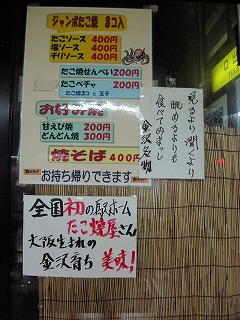 ジャンボたこ焼 8コ入
たこソース 400円
塩ソース 400円
チリソース 400円
たこ焼せんべい 200円
たこペチャ 200円
たこ焼3コと玉子
お好み焼
甘えび焼 200円
どんどん焼 300円
焼そば 400円
お持ち帰りできます
見るより聞くより
眺めるよりも
食べてみまっし
金沢名物
全国初の駅ホーム
たこ焼屋さん
大阪生まれの
金沢育ち 美味!